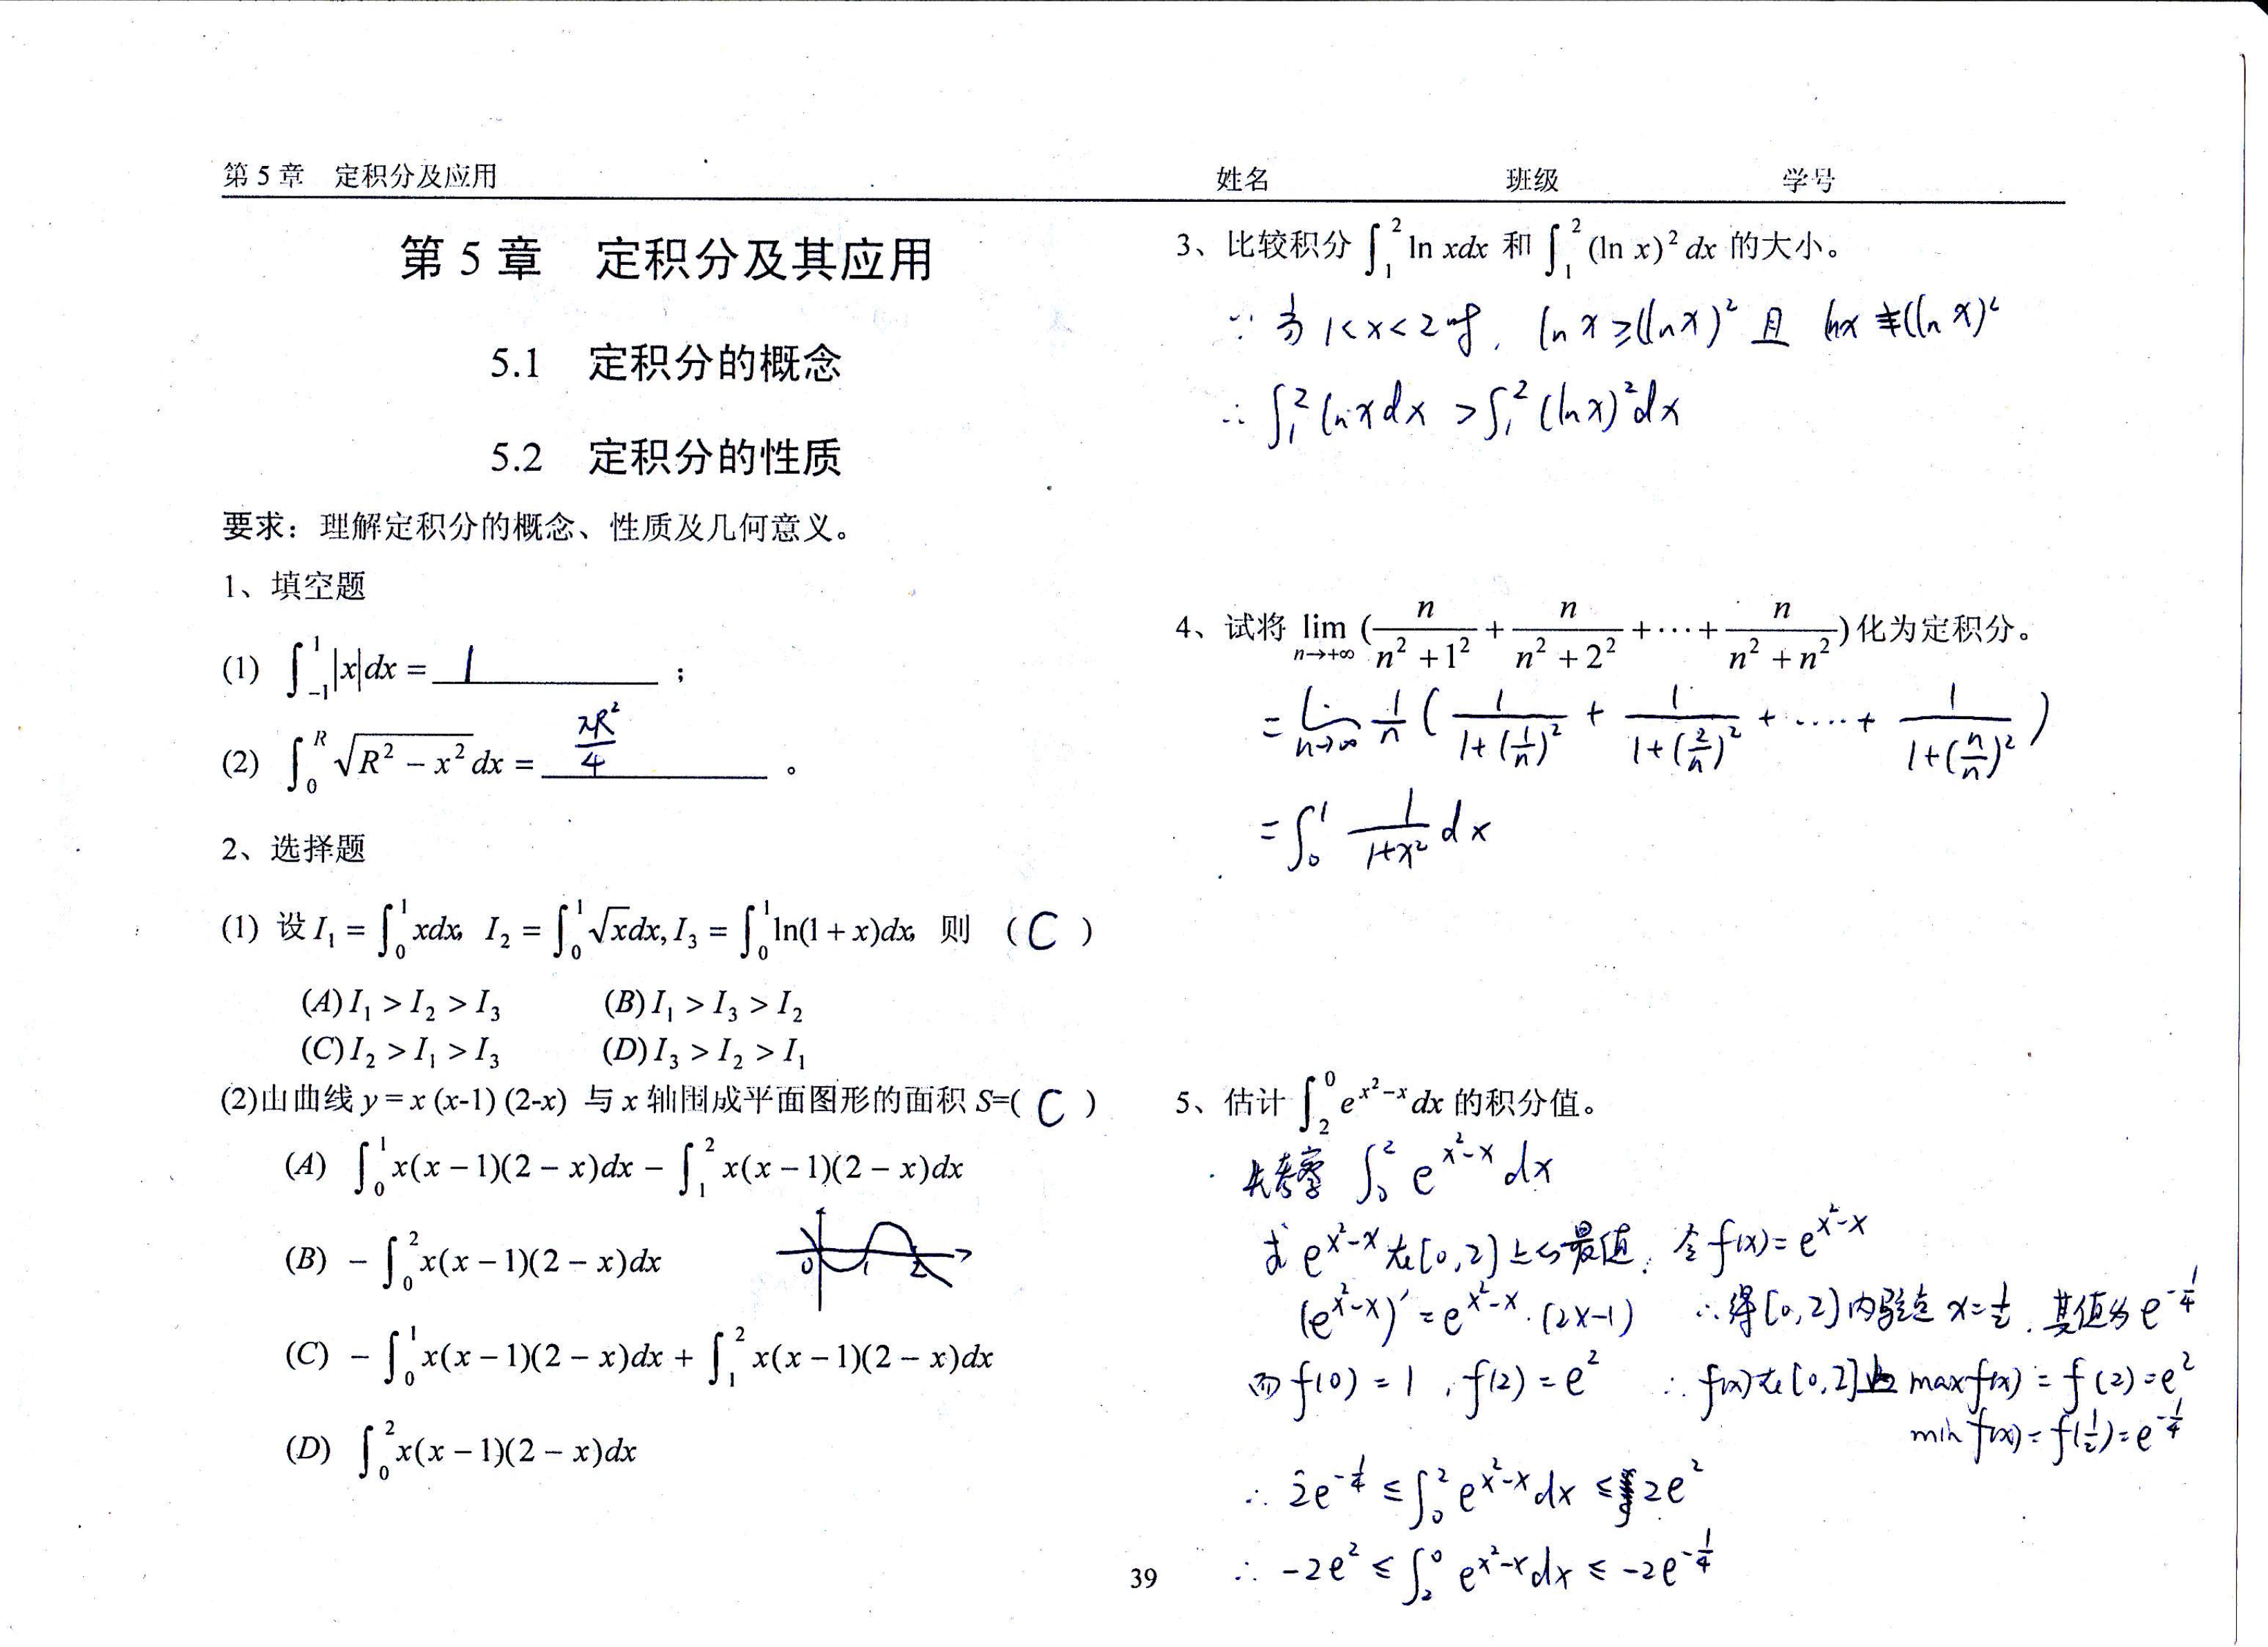 第 5 章 定积分及应用 姓名 班级 学号
第 5 章 定积分及其应用
5.1 定积分的概念
5.2 定积分的性质
要求：理解定积分的概念、性质及几何意义。
1、填空题
(1) ∫_{-1}^{1} |x|dx = 1 ；
(2) ∫_{0}^{R} √(R² − x²) dx = πR²/4 。
2、选择题
(1) 设 I₁ = ∫_{0}^{1} xdx, I₂ = ∫_{0}^{1} √x dx, I₃ = ∫_{0}^{1} ln(1 + x)dx, 则 （ C ）
(A) I₁ > I₂ > I₃ (B) I₁ > I₃ > I₂
(C) I₂ > I₁ > I₃ (D) I₃ > I₂ > I₁
(2)由曲线 y = x (x-1) (2-x) 与 x 轴围成平面图形的面积 S=( C )
(A) ∫_{0}^{1} x(x − 1)(2 − x)dx − ∫_{1}^{2} x(x − 1)(2 − x)dx
(B) − ∫_{0}^{2} x(x − 1)(2 − x)dx
0 1 2
(C) − ∫_{0}^{1} x(x − 1)(2 − x)dx + ∫_{1}^{2} x(x − 1)(2 − x)dx
(D) ∫_{0}^{2} x(x − 1)(2 − x)dx
3、比较积分 ∫_{1}^{2} ln xdx 和 ∫_{1}^{2} (ln x)² dx 的大小。
∵ 当 1<x<2时, ln x ≥(ln x)² 且 lnx ≢(ln x)²
∴ ∫_{1}^{2} ln x dx > ∫_{1}^{2} (ln x)² dx
4、试将 lim_{n→+∞} (n/(n² + 1²) + n/(n² + 2²) + ⋯ + n/(n² + n²)) 化为定积分。
= lim_{n→∞} 1/n ( 1/(1+(1/n)²) + 1/(1+(2/n)²) + ⋯⋯ + 1/(1+(n/n)²) )
= ∫_{0}^{1} 1/(1+x²) dx
5、估计 ∫_{2}^{0} e^{x²−x} dx 的积分值。
先考察 ∫_{0}^{2} e^{x²-x} dx
求 e^{x²-x} 在[0,2]上的最值. 令 f(x)= e^{x²-x}
(e^{x²-x})′ = e^{x²-x}·(2x-1) ∴得[0,2]内驻点 x=1/2. 其值为 e^{-1/4}
而 f(0) = 1 , f(2) = e² ∴ f(x)在[0,2]上 max f(x) = f(2) = e²
min f(x) = f(1/2) = e^{-1/4}
∴ 2e^{-1/4} ≤ ∫_{0}^{2} e^{x²-x} dx ≤ 2e²
∴ -2e² ≤ ∫_{2}^{0} e^{x²-x} dx ≤ -2e^{-1/4}
39